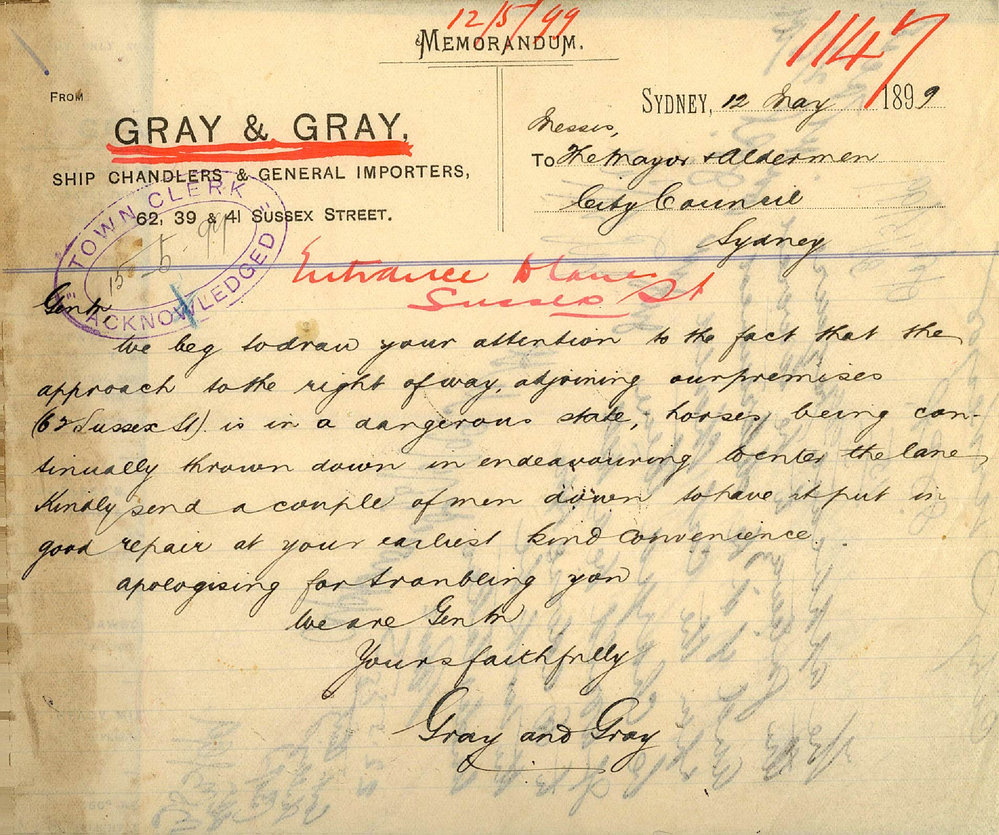 12/5/99
MEMORANDUM.
1147
FROM
GRAY & GRAY,
SHIP CHANDLERS & GENERAL IMPORTERS,
62, 39 & 41 SUSSEX STREET.
SYDNEY, 12 May 1899
Messrs,
TO The Mayor & Aldermen
City Council
Sydney
TOWN CLERK
15-5-99
"ACKNOWLEDGED"
Entrance to Lane
Sussex St
Gentn,
We beg to draw your attention to the fact that the
approach to the right of way, adjoining our premises
(62 Sussex St) is in a dangerous state, horses being con-
tinually thrown down in endeavouring to enter the lane
Kindly send a couple of men down to have it put in
good repair at your earliest kind convenience.
apologising for troubling you
We are Gentn
Yours faithfully
Gray and Gray